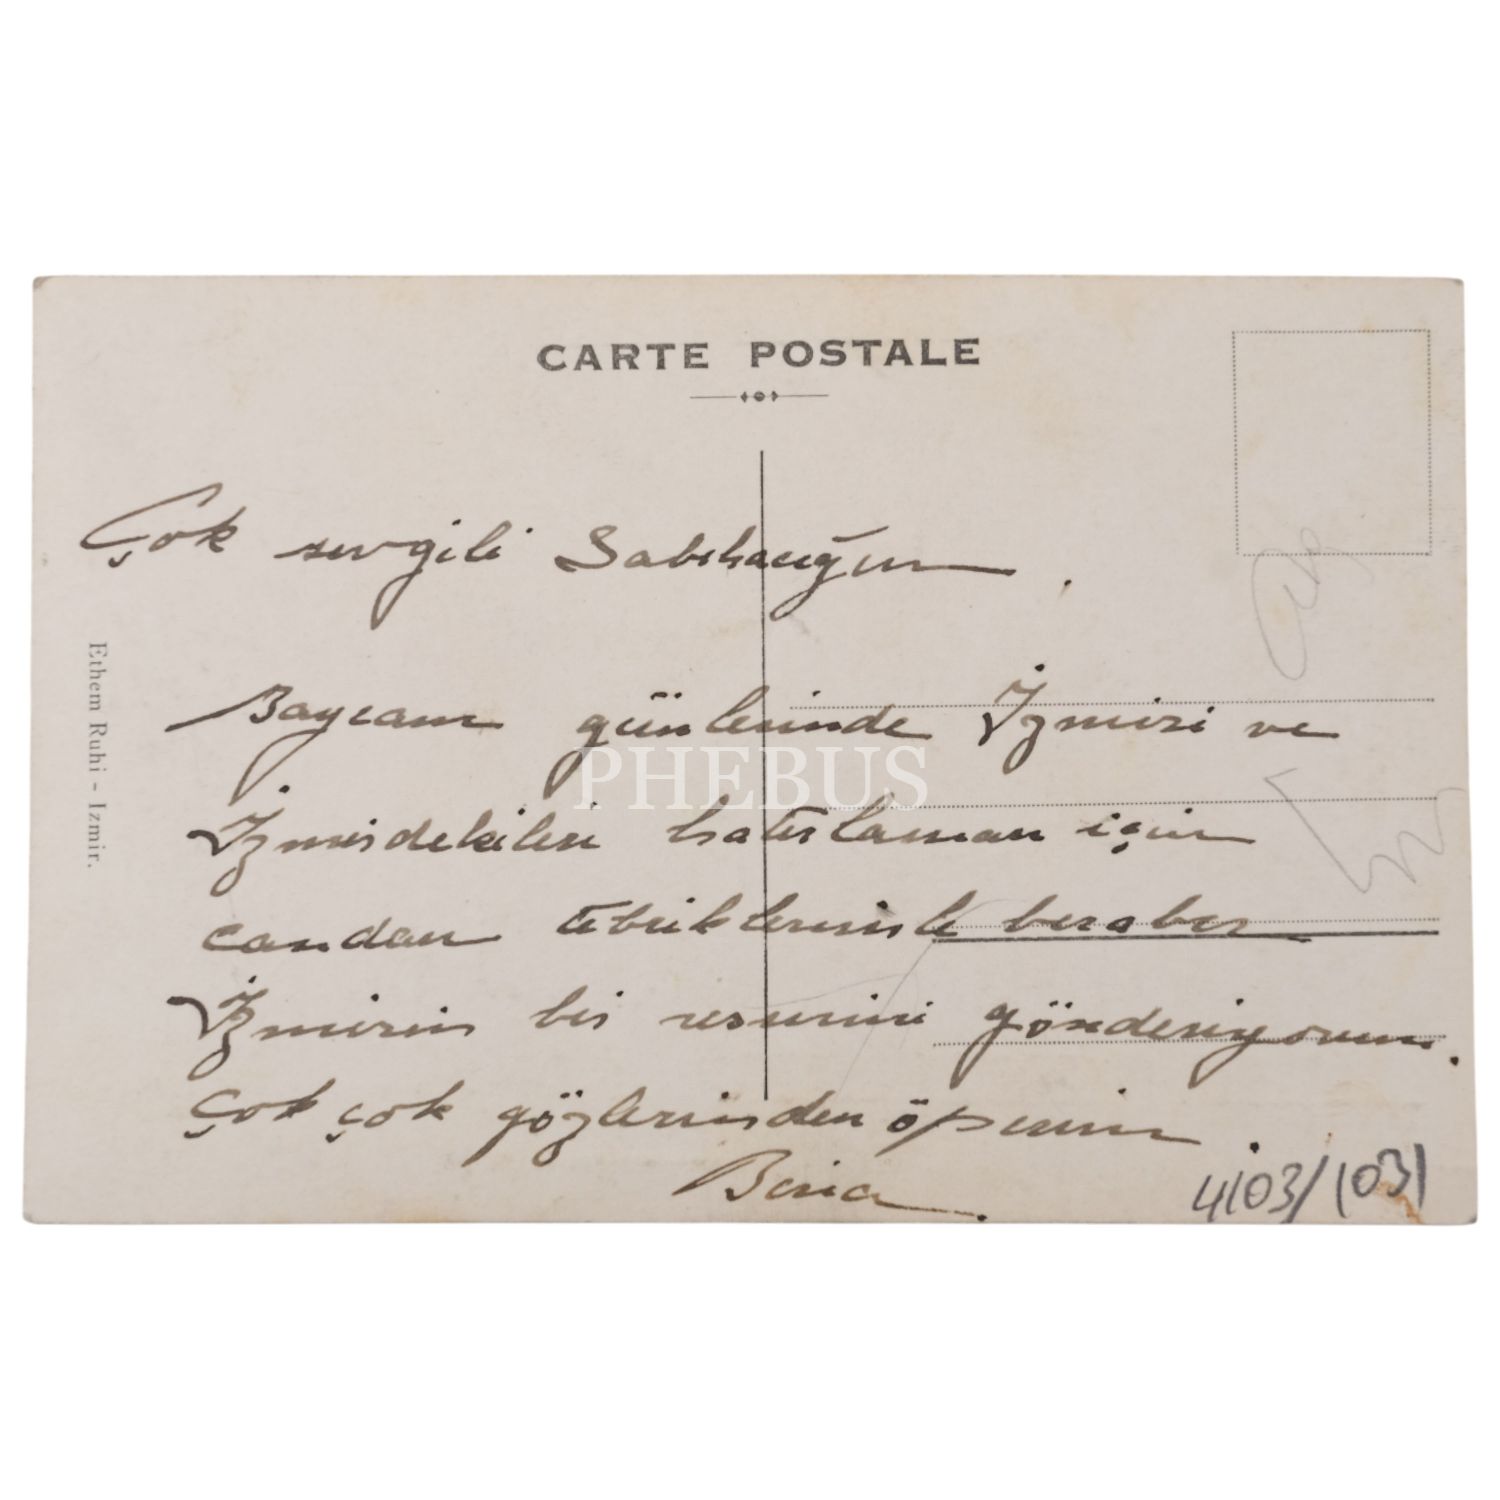 CARTE POSTALE
Çok sevgili Sabihacığım
Bayram günlerinde İzmiri ve
İzmirdekileri hatırlaman için
candan tebriklerimle beraber
İzmirin bir resmini gönderiyorum.
Çok çok gözlerinden öperim.
4103/1031
Ethem Ruhi - Izmir.
PHEBUS